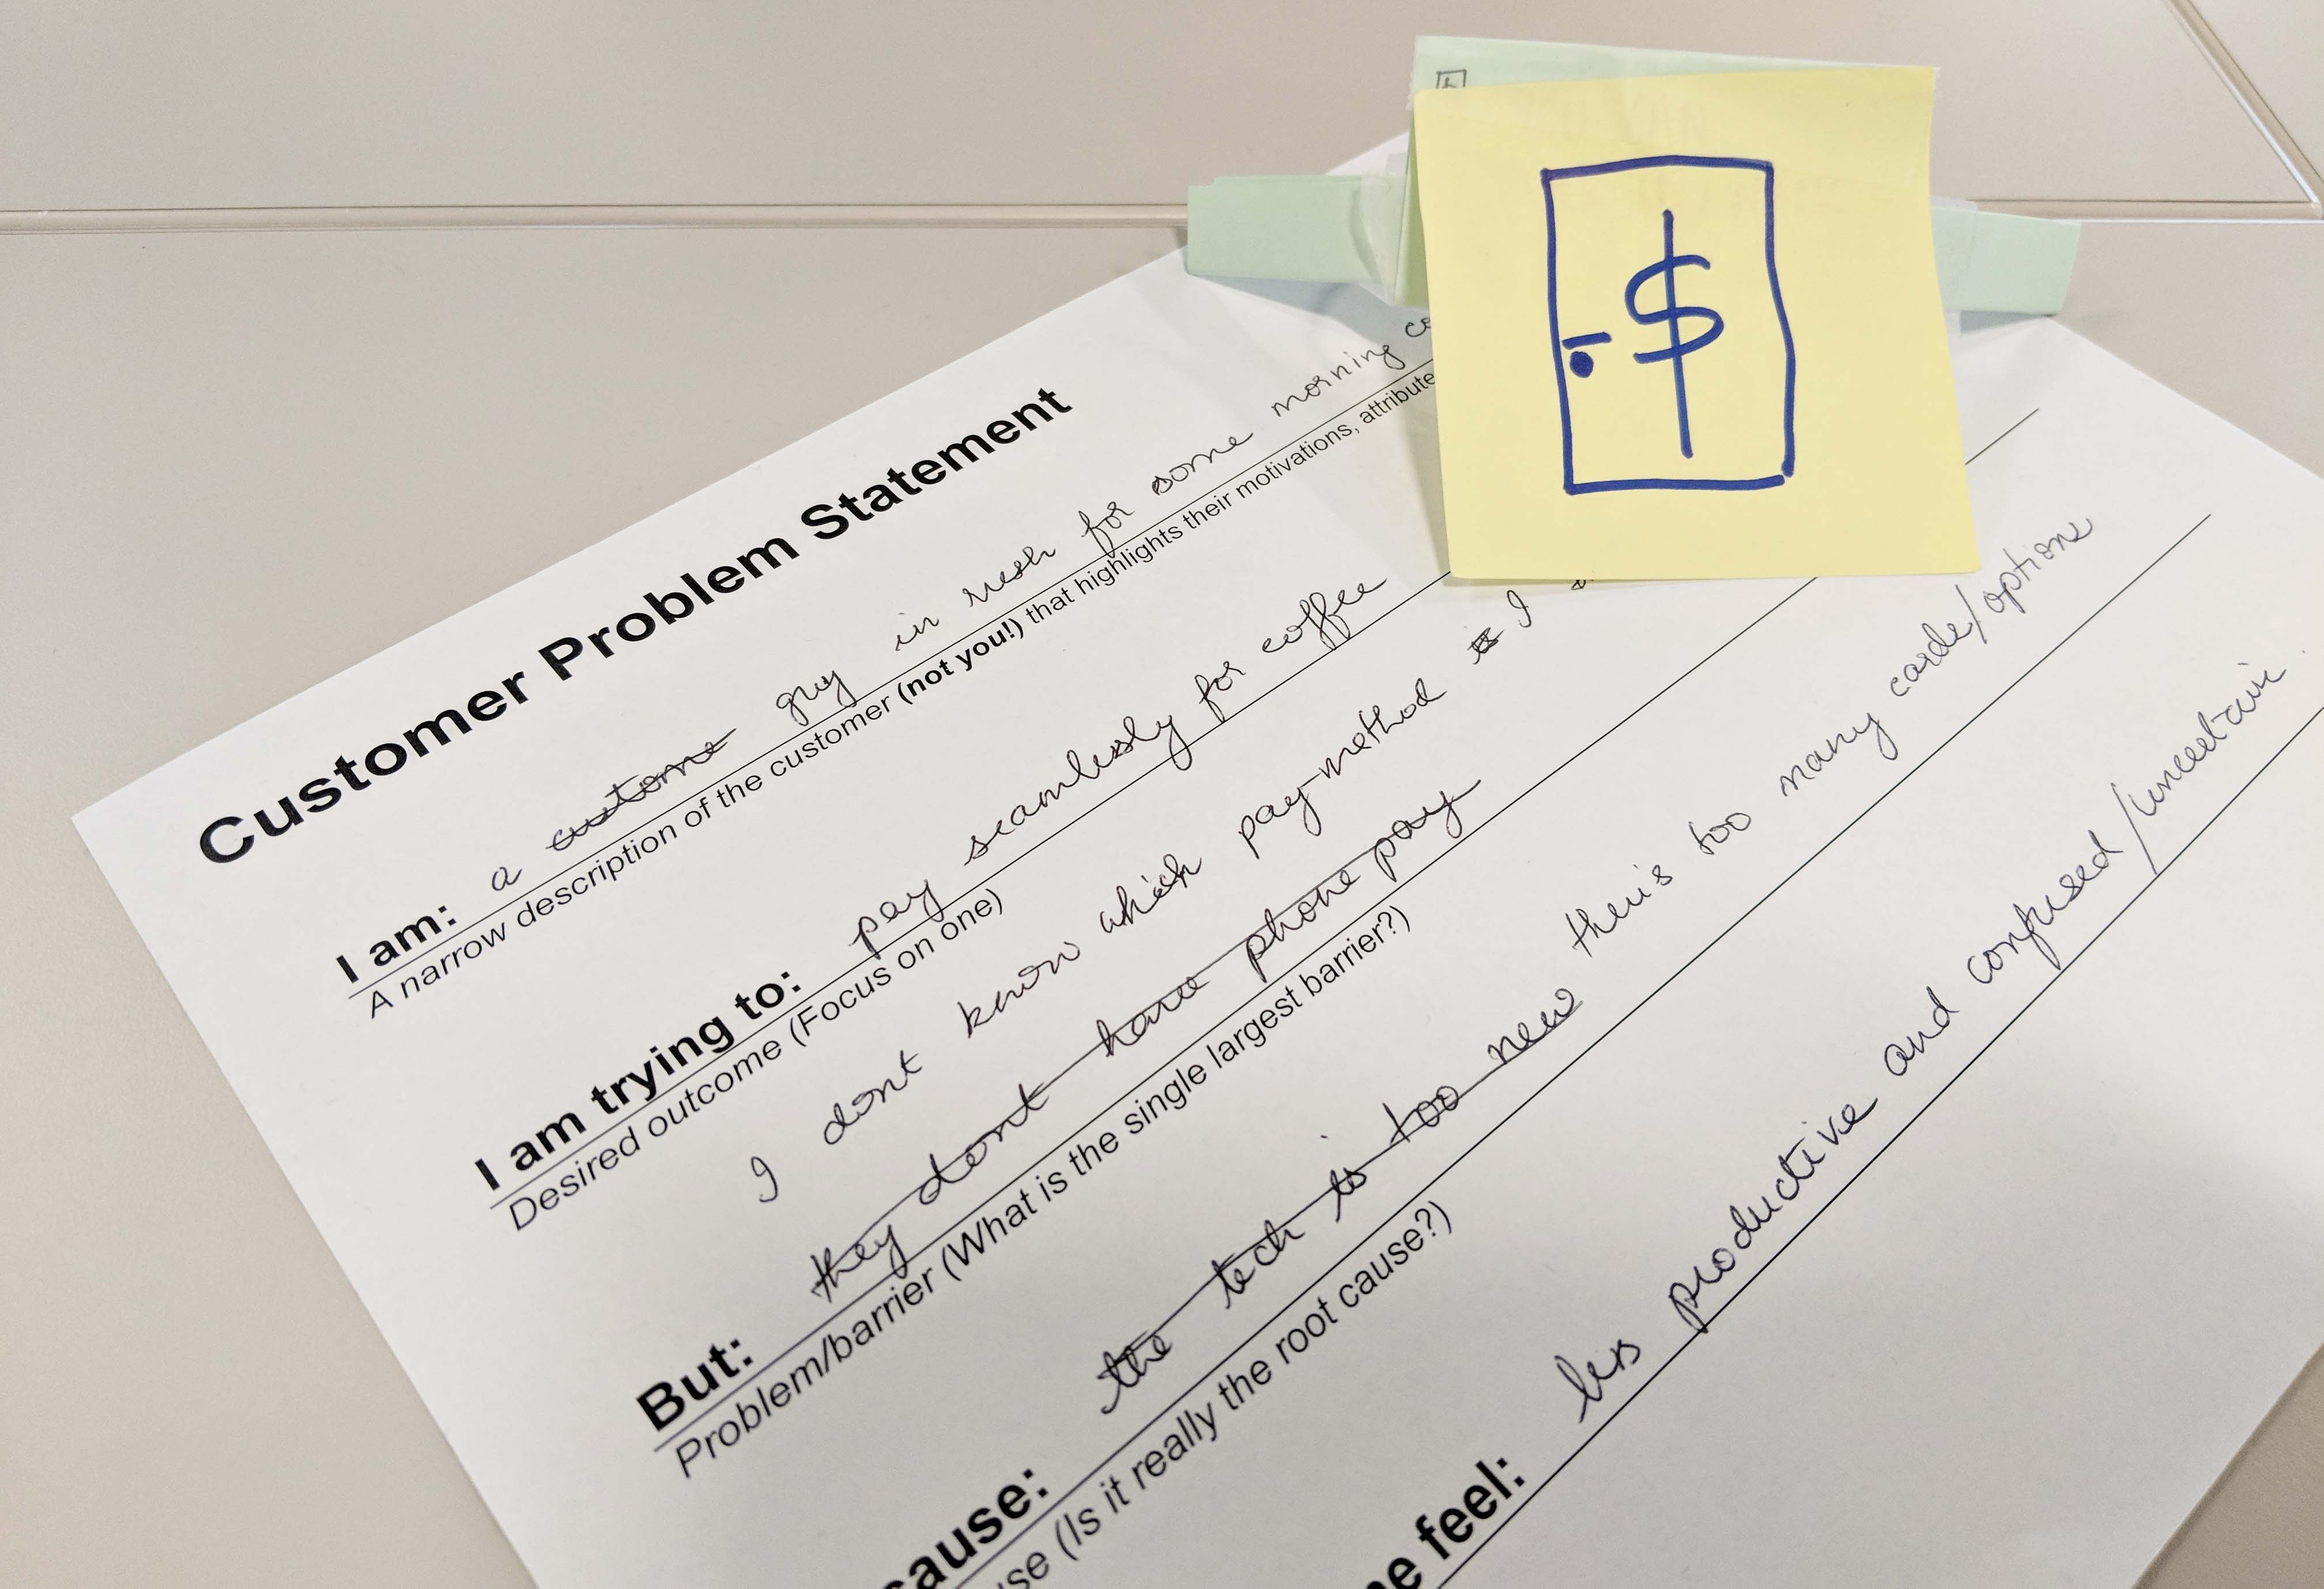 $
Customer Problem Statement
I am: a custome guy in rush for some morning
A narrow description of the customer (not you!) that highlights their motivations, attribute
I am trying to: pay seamlessly for coffee
Desired outcome (Focus on one)
I dont know which pay method is I
But: they dont have phone pay
Problem/barrier (What is the single largest barrier?)
cause: the tech is too new ther's too many cards/options
use (Is it really the root cause?)
me feel: less productive and confused/uncertain.